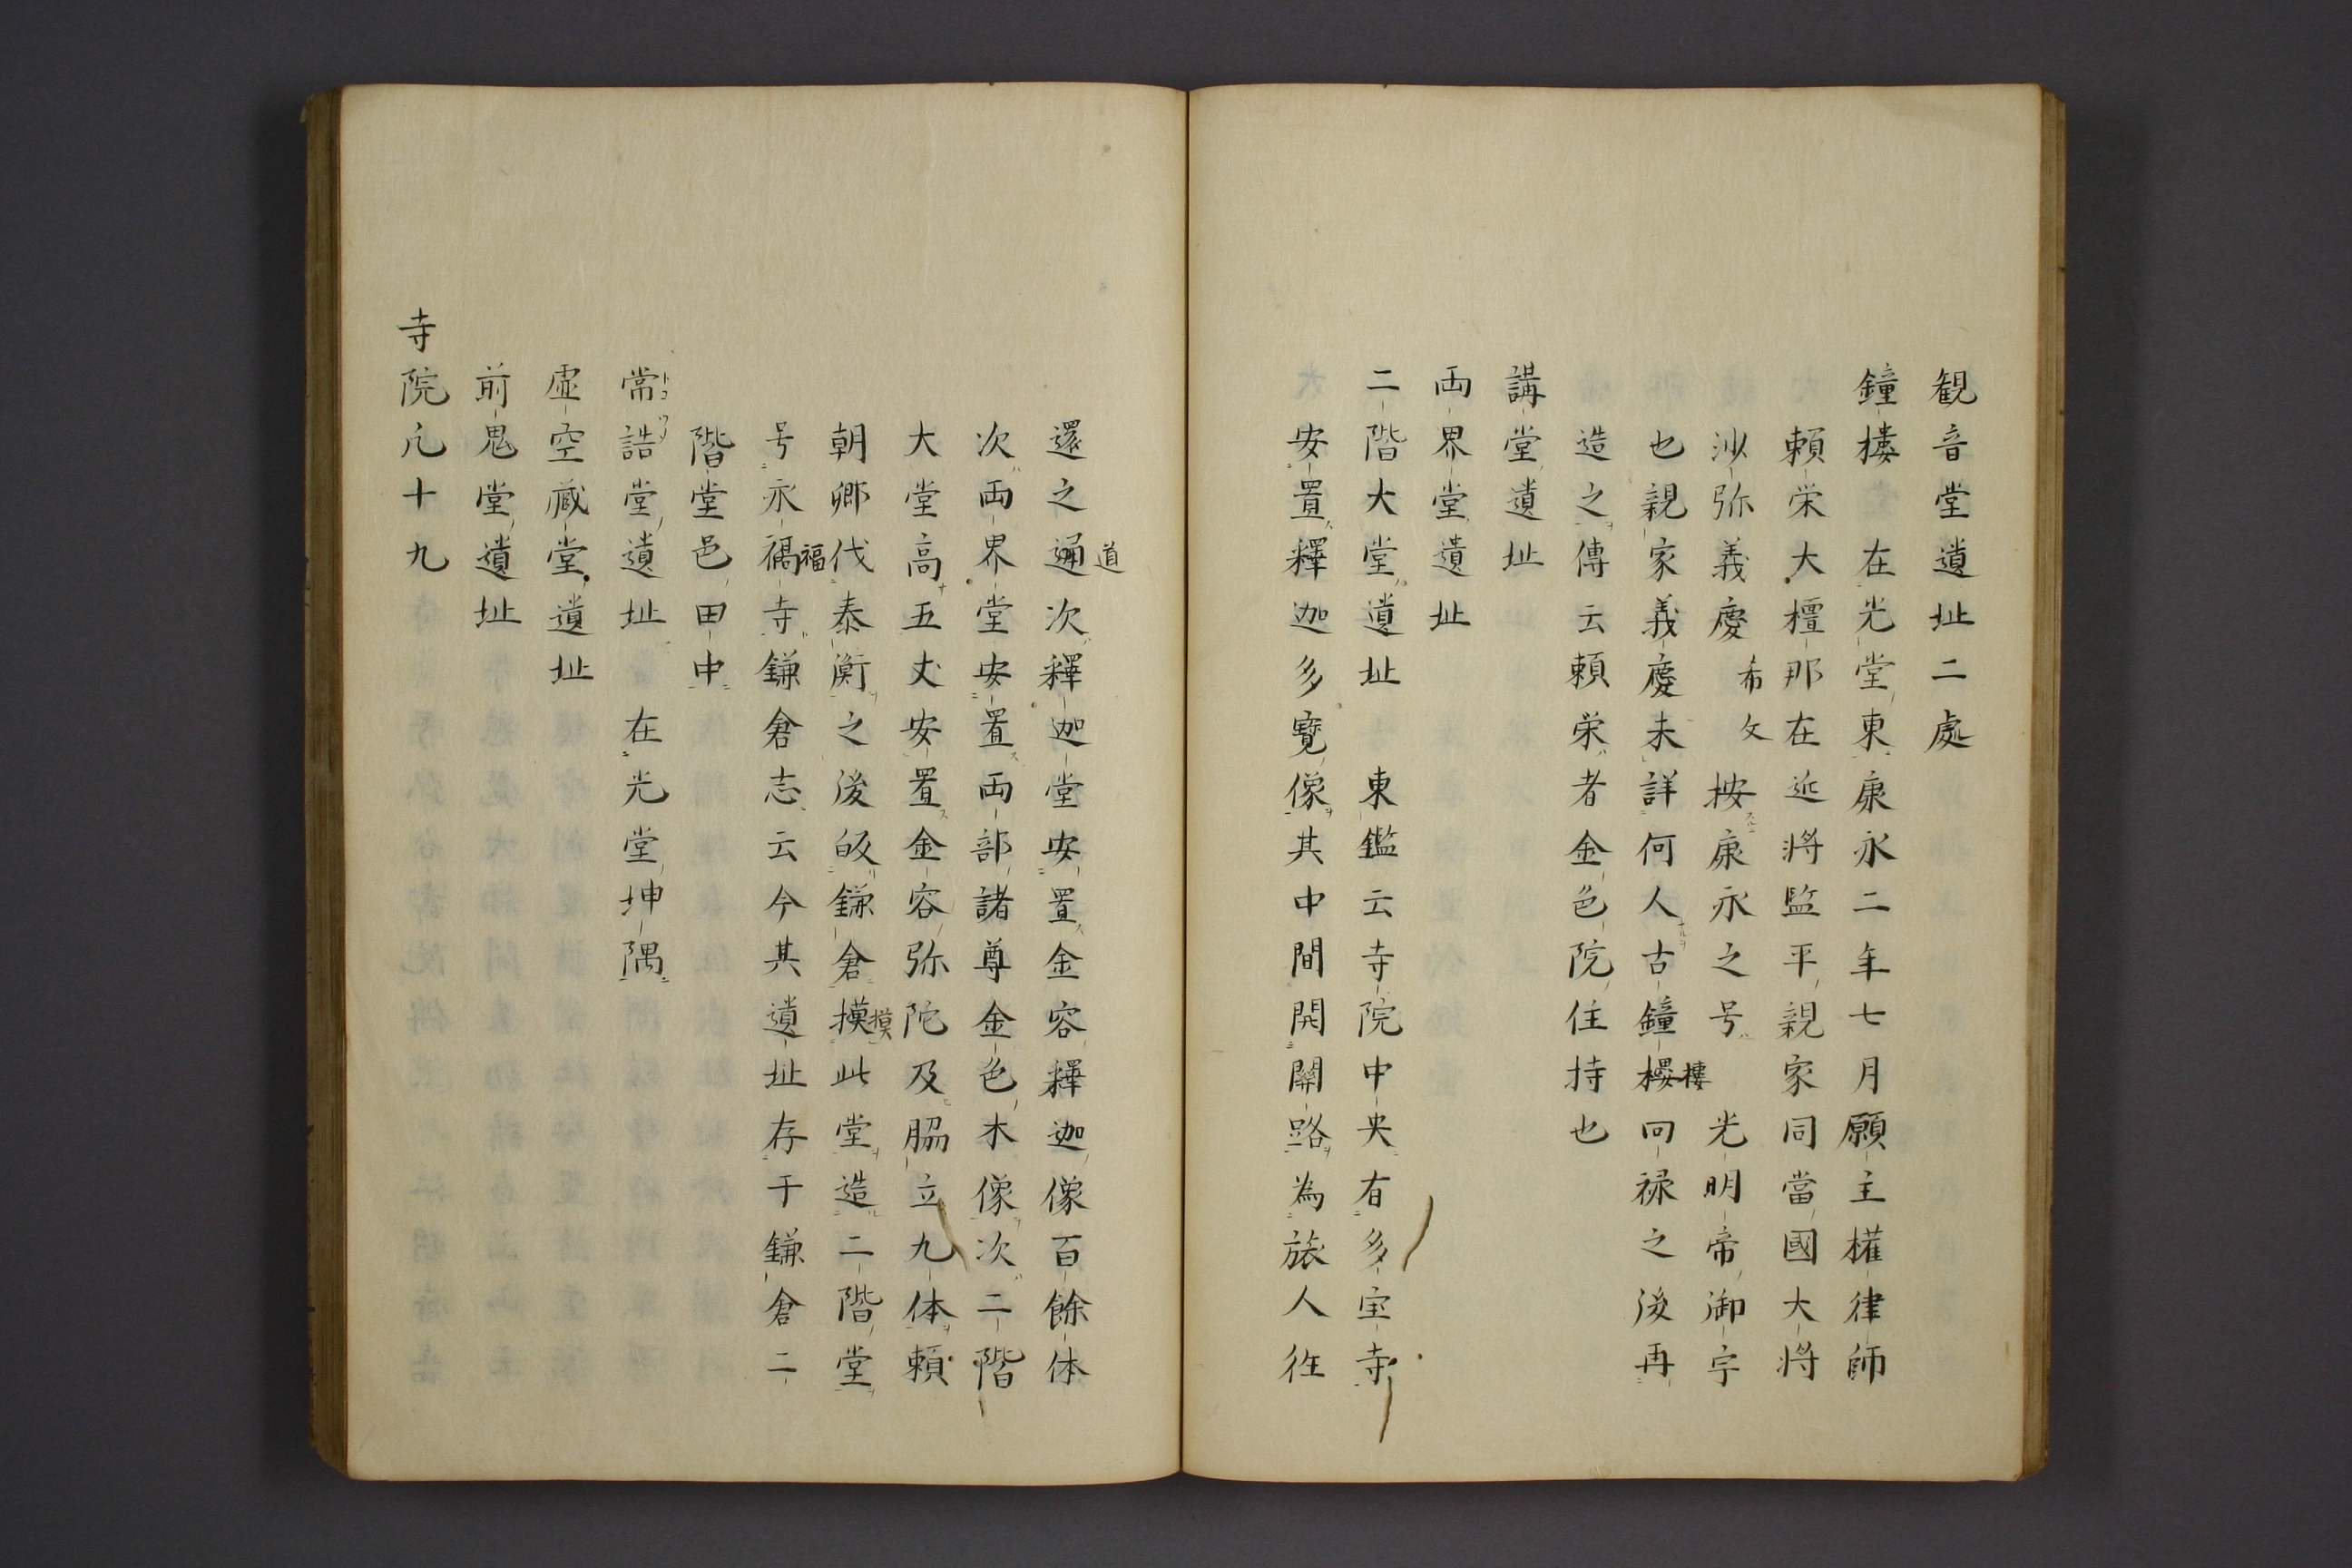 観音堂遺址二處
鐘楼 在光堂東康永二年七月願主権律師
頼栄大檀那在近将監平親家同當國大将
沙弥義慶 希文 按康永之号 光明帝御宇
也親家義慶未詳何人古鐘楼回禄之後再
樓
造之傳云頼栄者金色院住持也
講堂遺址
両界堂遺址
二階大堂遺址 東鑑云寺院中央有多宝寺
安置釋迦多寳像其中間開關路為旅人往
還之通次釋迦堂安置金容釋迦像百餘体
道
次両界堂安置両部諸尊金色木像次二階
大堂高五丈安置金容弥陀及脇立九体頼
朝卿伐泰衡之後皈鎌倉摸此堂造二階堂
摸
号永福寺鎌倉志云今其遺址存于鎌倉二
福
階堂邑田中
常誥堂遺址 在光堂坤隅
虚空藏堂遺址
前鬼堂遺址
寺院凢十九